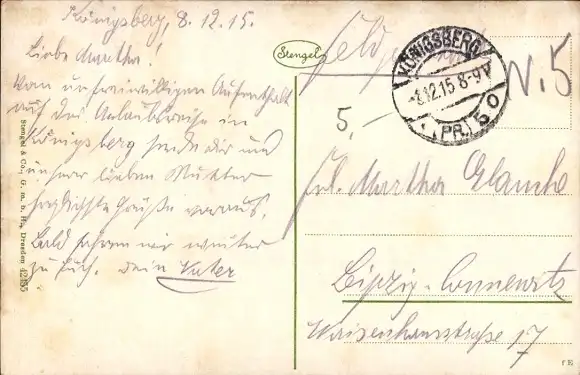 Königsberg, 8.12.15.
Liebe Martha!
Vom unfreiwilligen Aufenthalt
auf der Urlaubsreise in
Königsberg sende dir und
unserer lieben Mutter
herzlichste Grüße voraus.
Bald fahren wir weiter
zu Euch. Dein Vater
Stengel & Co., G. m. b. H., Dresden 42155
Stengel
Feld
KÖNIGSBERG
8.12.15 8-9V
(PR) 5
N. 5
5,-
Frl. Martha Glauche
Leipzig-Connewitz
Waisenhausstraße 17